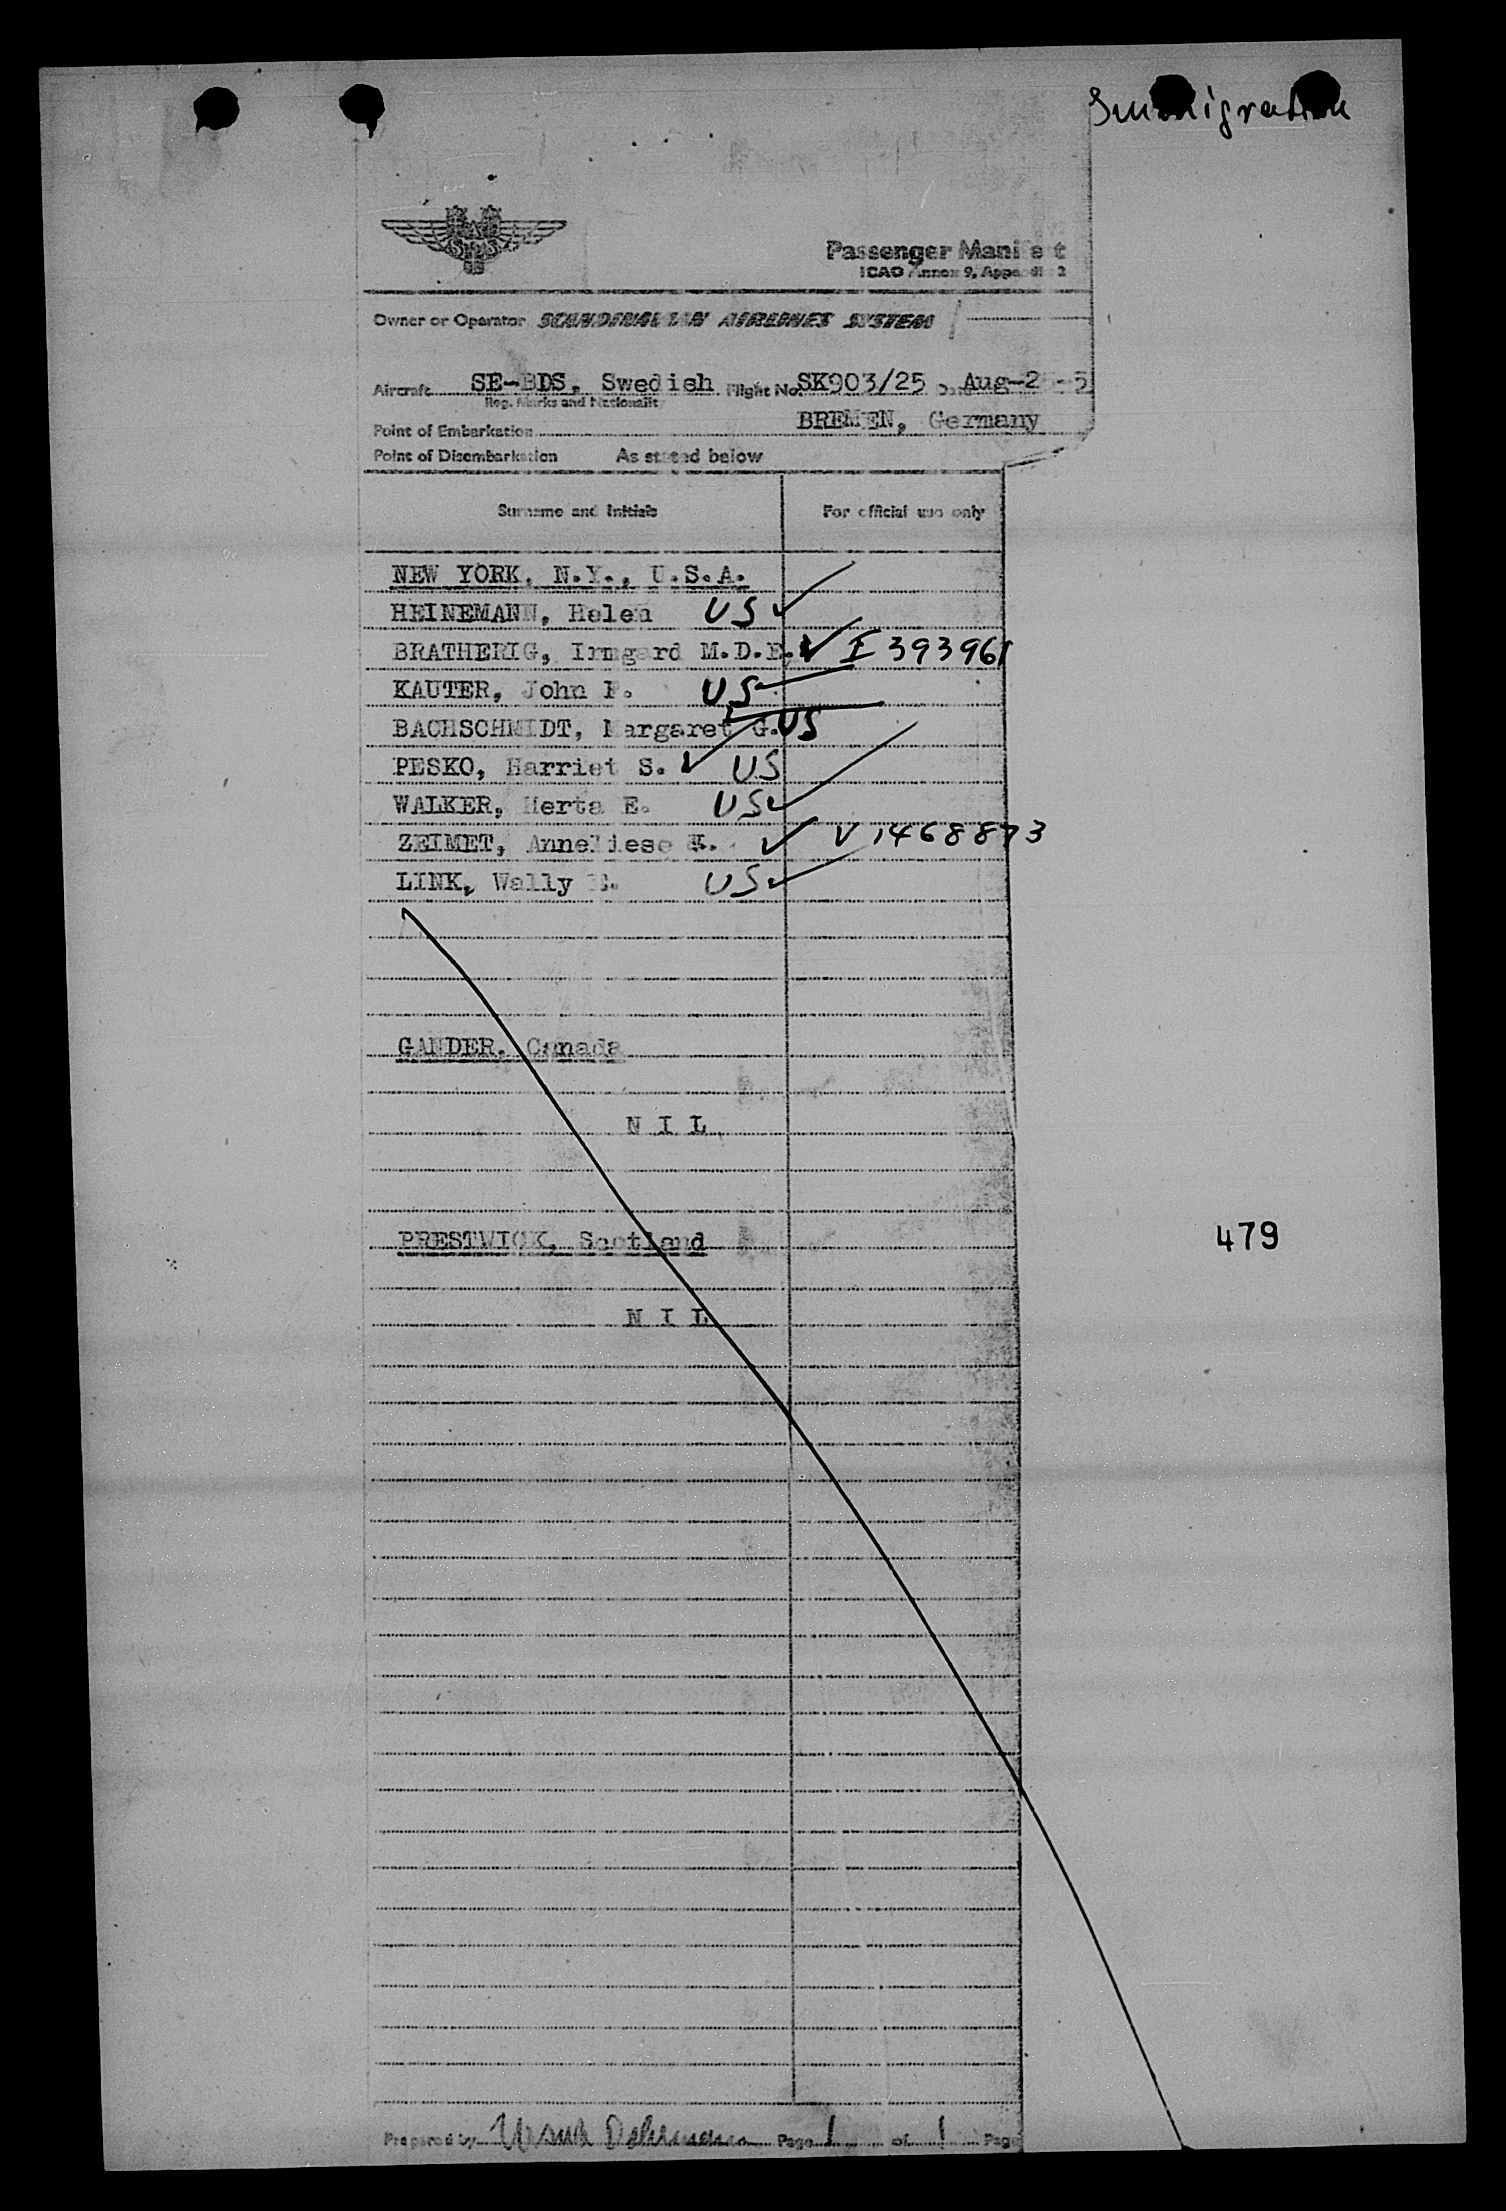 Immigration
SAS
Passenger Manifest
ICAO Annex 9, Appendix 2
Owner or Operator SCANDINAVIAN AIRLINES SYSTEM
Aircraft SE-BDS, Swedish Flight No. SK903/25 Date Aug-2
Reg. Marks and Nationality
BREMEN, Germany
Point of Embarkation
Point of Disembarkation As stated below
Surname and Initials For official use only
NEW YORK, N.Y., U.S.A.
HEINEMANN, Helen US ✓
BRATHERIG, Irmgard M.D.E. ✓ I 393961
KAUTER, John P. US
BACHSCHMIDT, Margaret G. US
PESKO, Harriet S. ✓ US
WALKER, Herta E. US ✓
ZEIMET, Anneliese K. ✓ V 1468873
LINK, Wally US ✓
GANDER, Canada
N I L
PRESTWICK, Scotland
479
N I L
Prepared by Page 1 of 1 Page